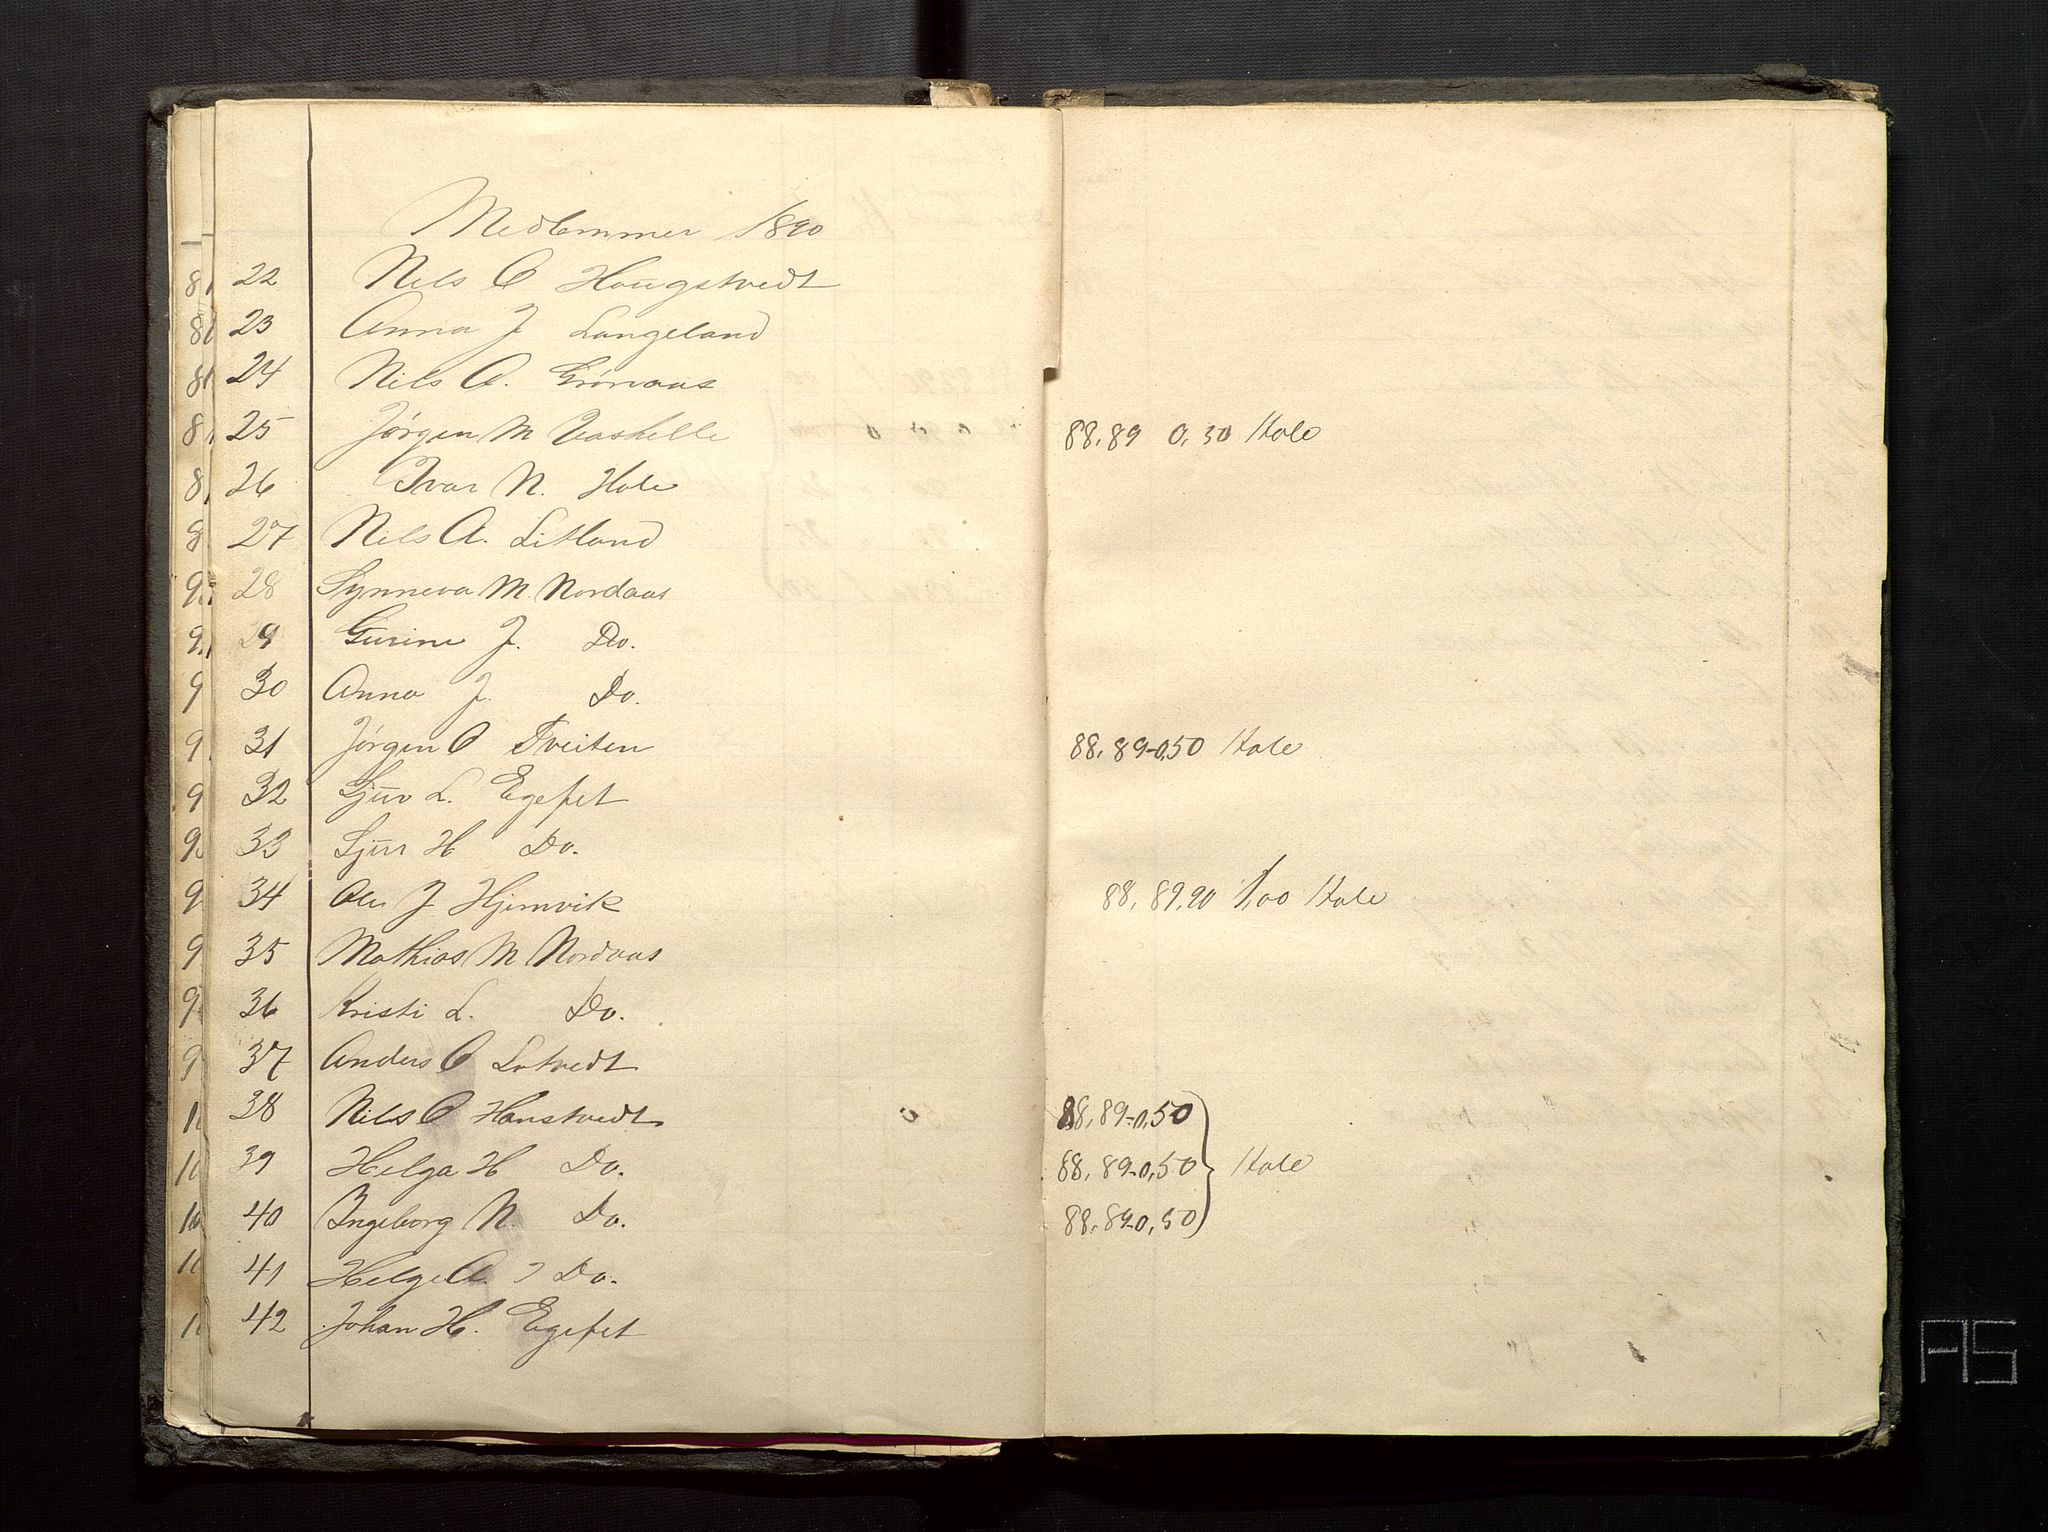 Medlemmer 1890
22 Nils O Hougstvedt
23 Anna J Langeland
24 Nils A. Grønaas
25 Jørgen M Vashelle 88,89 0,30 Hole
26 Ivar N. Hole
27 Nils A. Litland
28 Synneva M. Nordaas
29 Gurine J. Do.
30 Anna J. Do.
31 Jørgen O Tveiten 88,89-0,50 Hole
32 Sjur L. Egefet
33 Sjur H Do.
34 Ole J Hjemvik 88,89,90 1,00 Hole
35 Mathias M Nordaas
36 Kristi L. Do.
37 Anders O Lotvedt
38 Nils O Hanstvedt 88,89-0,50
39 Helga H Do. 88,89-0,50 Hole
40 Ingeborg N. Do. 88,89-0,50
41 Helge A. Do.
42 Johan H. Egefet
AS